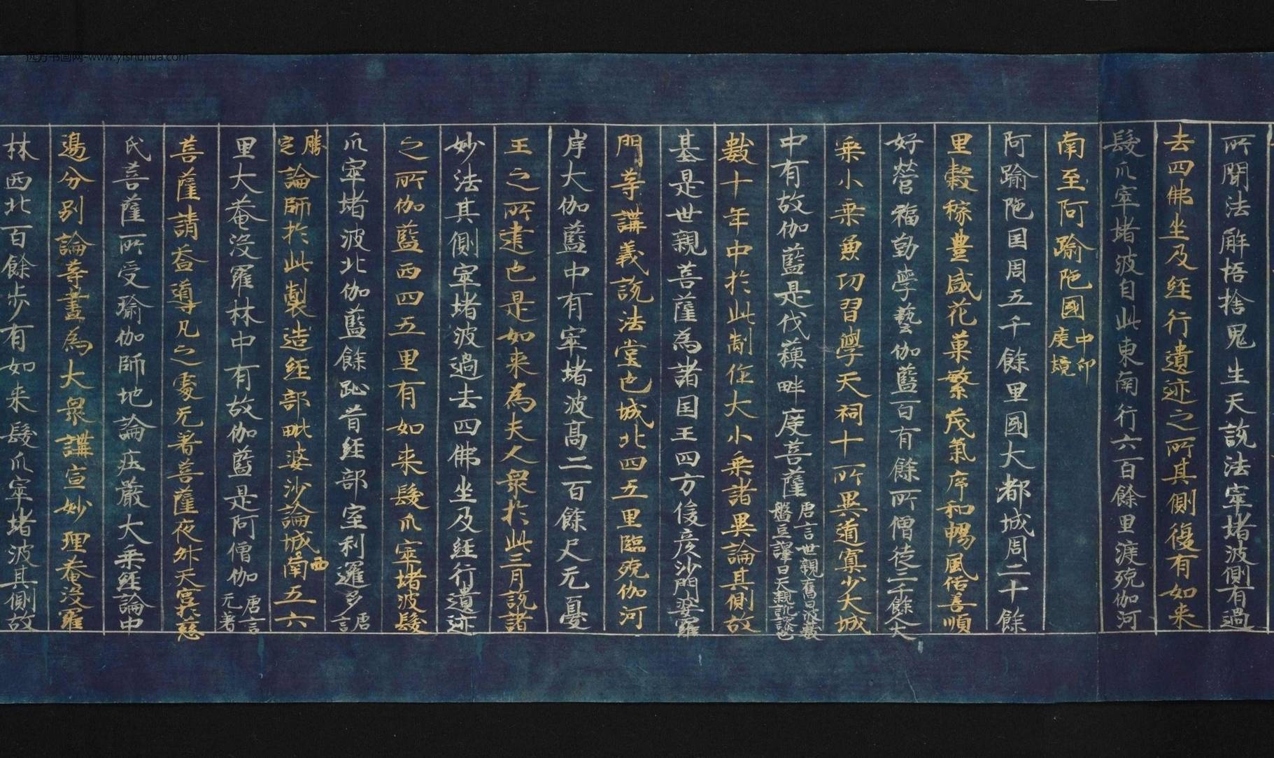 所聞法解悟捨鬼生天說法窣堵波側有過
去四佛坐及經行遺迹之所其側復有如來
髮爪窣堵波自此東南行六百餘里渡殑伽河
南至阿踰陁國中印度境
阿踰陁国周五千餘里國大都城周二十餘
里穀稼豊盛花菓繁茂氣序和暢風俗善順
好營福勤學藝伽藍百有餘所僧徒三千餘人大
乗小乗兼切習學天祠十所異道寡少大城
中有故伽藍是伐蘓畔度菩薩唐言世親舊曰婆藪盤豆譯曰天親訛謬也
數十年中於此制作大小乗諸異論其側故
基是世親菩薩為諸国王四方俊彦沙門婆羅
門等講義説法堂也城北四五里臨殑伽河
岸大伽藍中有窣堵波高二百餘尺无憂
王之所建也是如来為天人衆於此三月説諸
妙法其側窣堵波過去四佛坐及経行遺迹
之所伽藍西四五里有如来髮爪窣堵波髮
爪窣堵波北伽藍餘趾昔経部室利邏多唐言
勝定論師於此製造経部毗婆沙論城西南五六
里大菴没羅林中有故伽藍是阿僧伽唐言无著
菩薩請益導凡之處无著菩薩夜昇天宮於慈
氏菩薩所受瑜伽師地論荘嚴大乗経論中
邊分別論等晝為大衆講宣妙理菴没羅
林西北百餘歩有如来髮爪窣堵波其側故
www.yishuhua.com